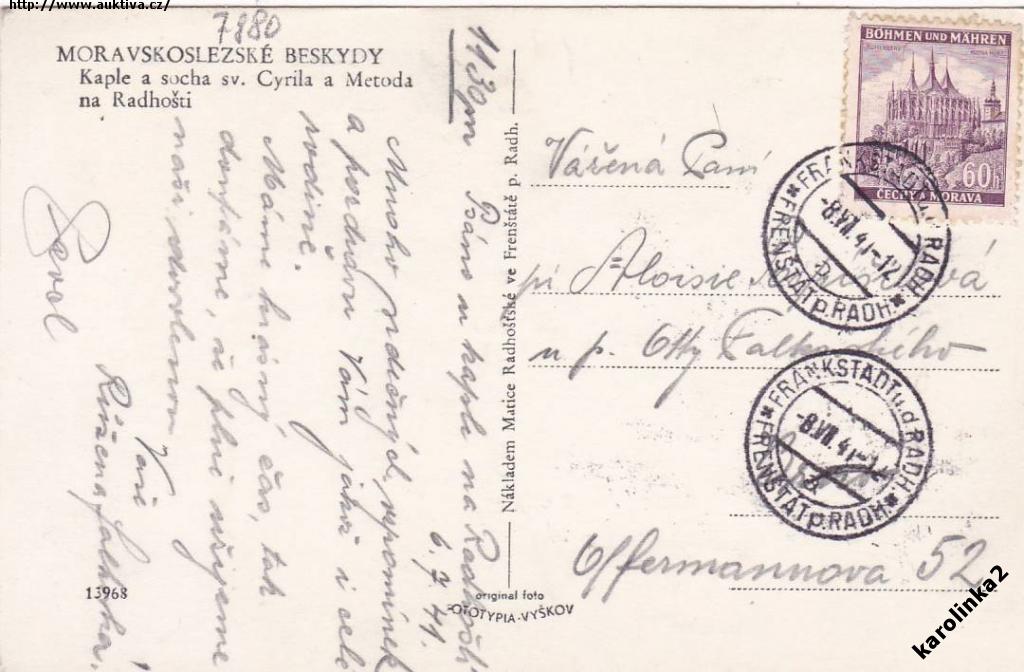 http://www.auktiva.cz/
7880
MORAVSKOSLEZSKÉ BESKYDY
Kaple a socha sv. Cyrila a Metoda
na Radhošti
1130 m
Ráno u kaple na Radhošti
6. 7. 41.
Mnoho srdečných vzpomínek
a pozdravů Vám jakož i celé
rodině.
Máme krásný čas, tak
doufáme, že plně užijeme
naši dovolenou.
Vaši
Růžena
Karol
13968
Nákladem Matice Radhošťské ve Frenštátě p. Radh.
original foto
FOTOTYPIA-VYŠKOV
BÖHMEN UND MÄHREN
60h
ČECHY A MORAVA
FRANKSTADT u.d. RADH.
-8.VII.41-12
FRENŠTÁT p. RADH.
Vážená Paní
pí Aloisie
u p. Otty Falknského
FRANKSTADT u.d. RADH.
-8.VII.41-12
FRENŠTÁT p. RADH.
Offermannova 52
karolinka2